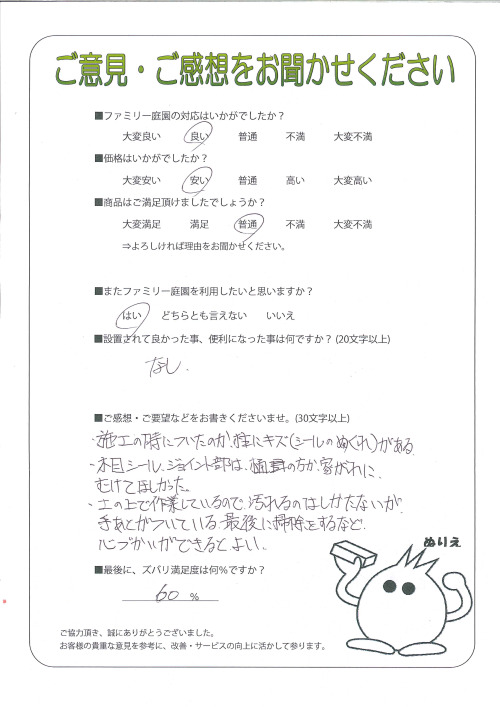 ご意見・ご感想をお聞かせください
■ファミリー庭園の対応はいかがでしたか？
大変良い 良い 普通 不満 大変不満
■価格はいかがでしたか？
大変安い 安い 普通 高い 大変高い
■商品はご満足頂けましたでしょうか？
大変満足 満足 普通 不満 大変不満
⇒よろしければ理由をお聞かせください。
■またファミリー庭園を利用したいと思いますか？
はい どちらとも言えない いいえ
■設置されて良かった事、便利になった事は何ですか？(20文字以上)
なし.
■ご感想・ご要望などをお書きくださいませ。(30文字以上)
・施工の時についたのか、柱にキズ(シールのめくれ)がある
・木目シール、ジョイント部は、の方か、家がれに、
むけてほしかった。
・土の上で作業しているので、汚れるのはしかたないが
手あとがついている。最後に掃除をするなど、
心づかいができるとよい.
ぬりえ
■最後に、ズバリ満足度は何％ですか？
60 %
ご協力頂き、誠にありがとうございました。
お客様の貴重な意見を参考に、改善・サービスの向上に活かして参ります。